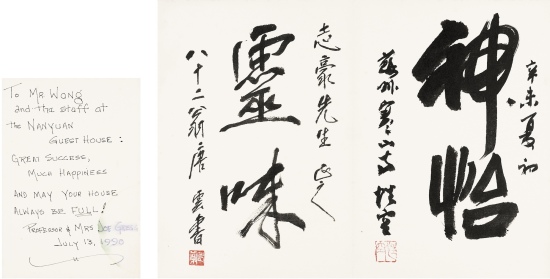 To Mr Wong
and the staff at
the NANYUAN
GUEST HOUSE:
GREAT SUCCESS,
MUCH HAPPINESS
AND MAY YOUR HOUSE
ALWAYS BE FULL!
PROFESSOR & MRS
JULY 13, 1990
靈味
志豪先生 正之
八十二翁唐雲書
辛未夏初
神怡
蘇州寒山寺性空